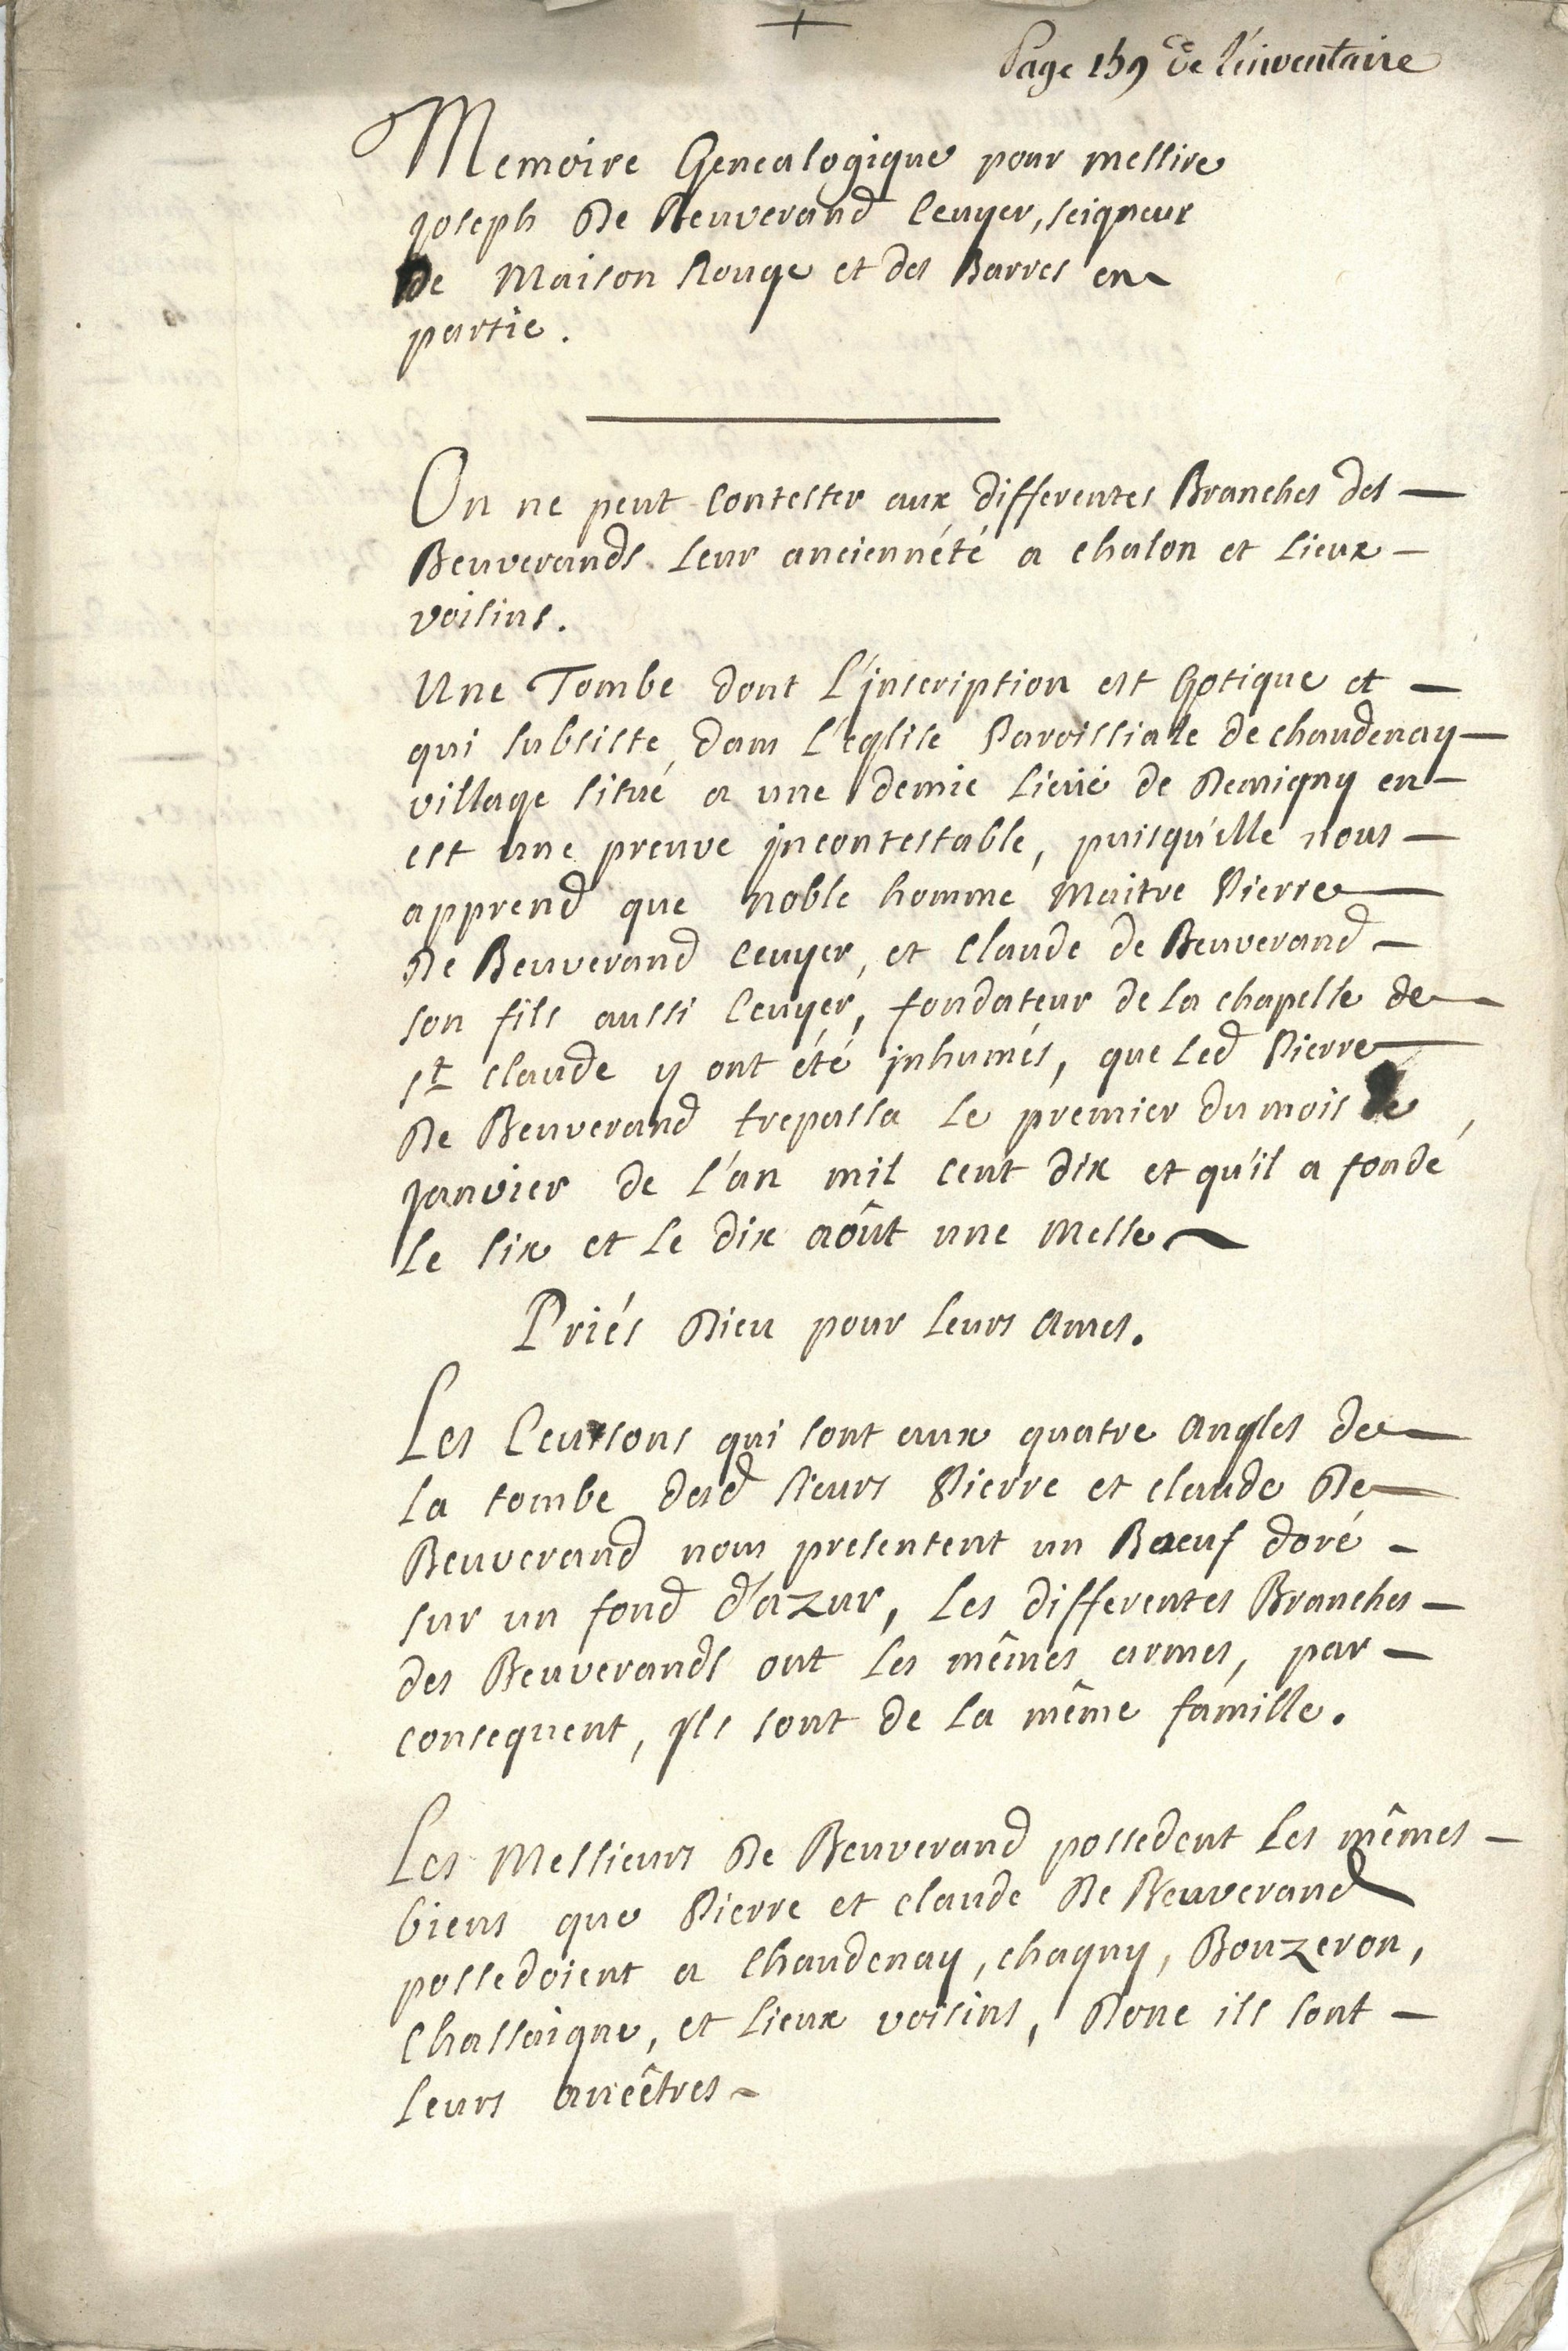 Page 159 de l'inventaire
Memoire Genealogique pour messire
joseph De Beuverand Ecuyer, seigneur
De Maison Rouge et des Barres en
partie.
On ne peut contester aux differentes Branches des
Beuverands leur anciennété a chalon et Lieux
voisins.
Une Tombe dont L'jnscription est Gotique et
qui subsiste dans L'eglise Paroissiale de chaudenay
village situé a une demie Lieüe de Demigny en
est une preuve jncontestable, puisqu'elle nous
apprend que noble homme Maitre Pierre
De Beuverand Ecuyer, et Claude de Beuverand
son fils aussi Ecuyer, fondateur de la chapelle de
st claude y ont été jnhumés, que led Pierre
De Beuverand trepassa Le premier du mois de
janvier de L'an mil cent dix et qu'il a fondé
Le six et Le dix aôut une Messe
Priés Dieu pour Leurs Ames.
Les Ecussons qui sont aux quatre Angles de
La tombe desd sieurs Pierre et claude De
Beuverand nous presentent un Boeuf doré
sur un fond d'azur, Les differentes Branches
des Beuverands ont Les mêmes armes, par
consequent, jls sont de La même famille.
Les Messieurs De Beuverand possedent Les mêmes
biens que Pierre et claude De Beuverand
possedoient a Chaudenay, chagny, Bouzeron,
Chassaigne, et Lieux voisins, Donc ils sont
Leurs ancêtres